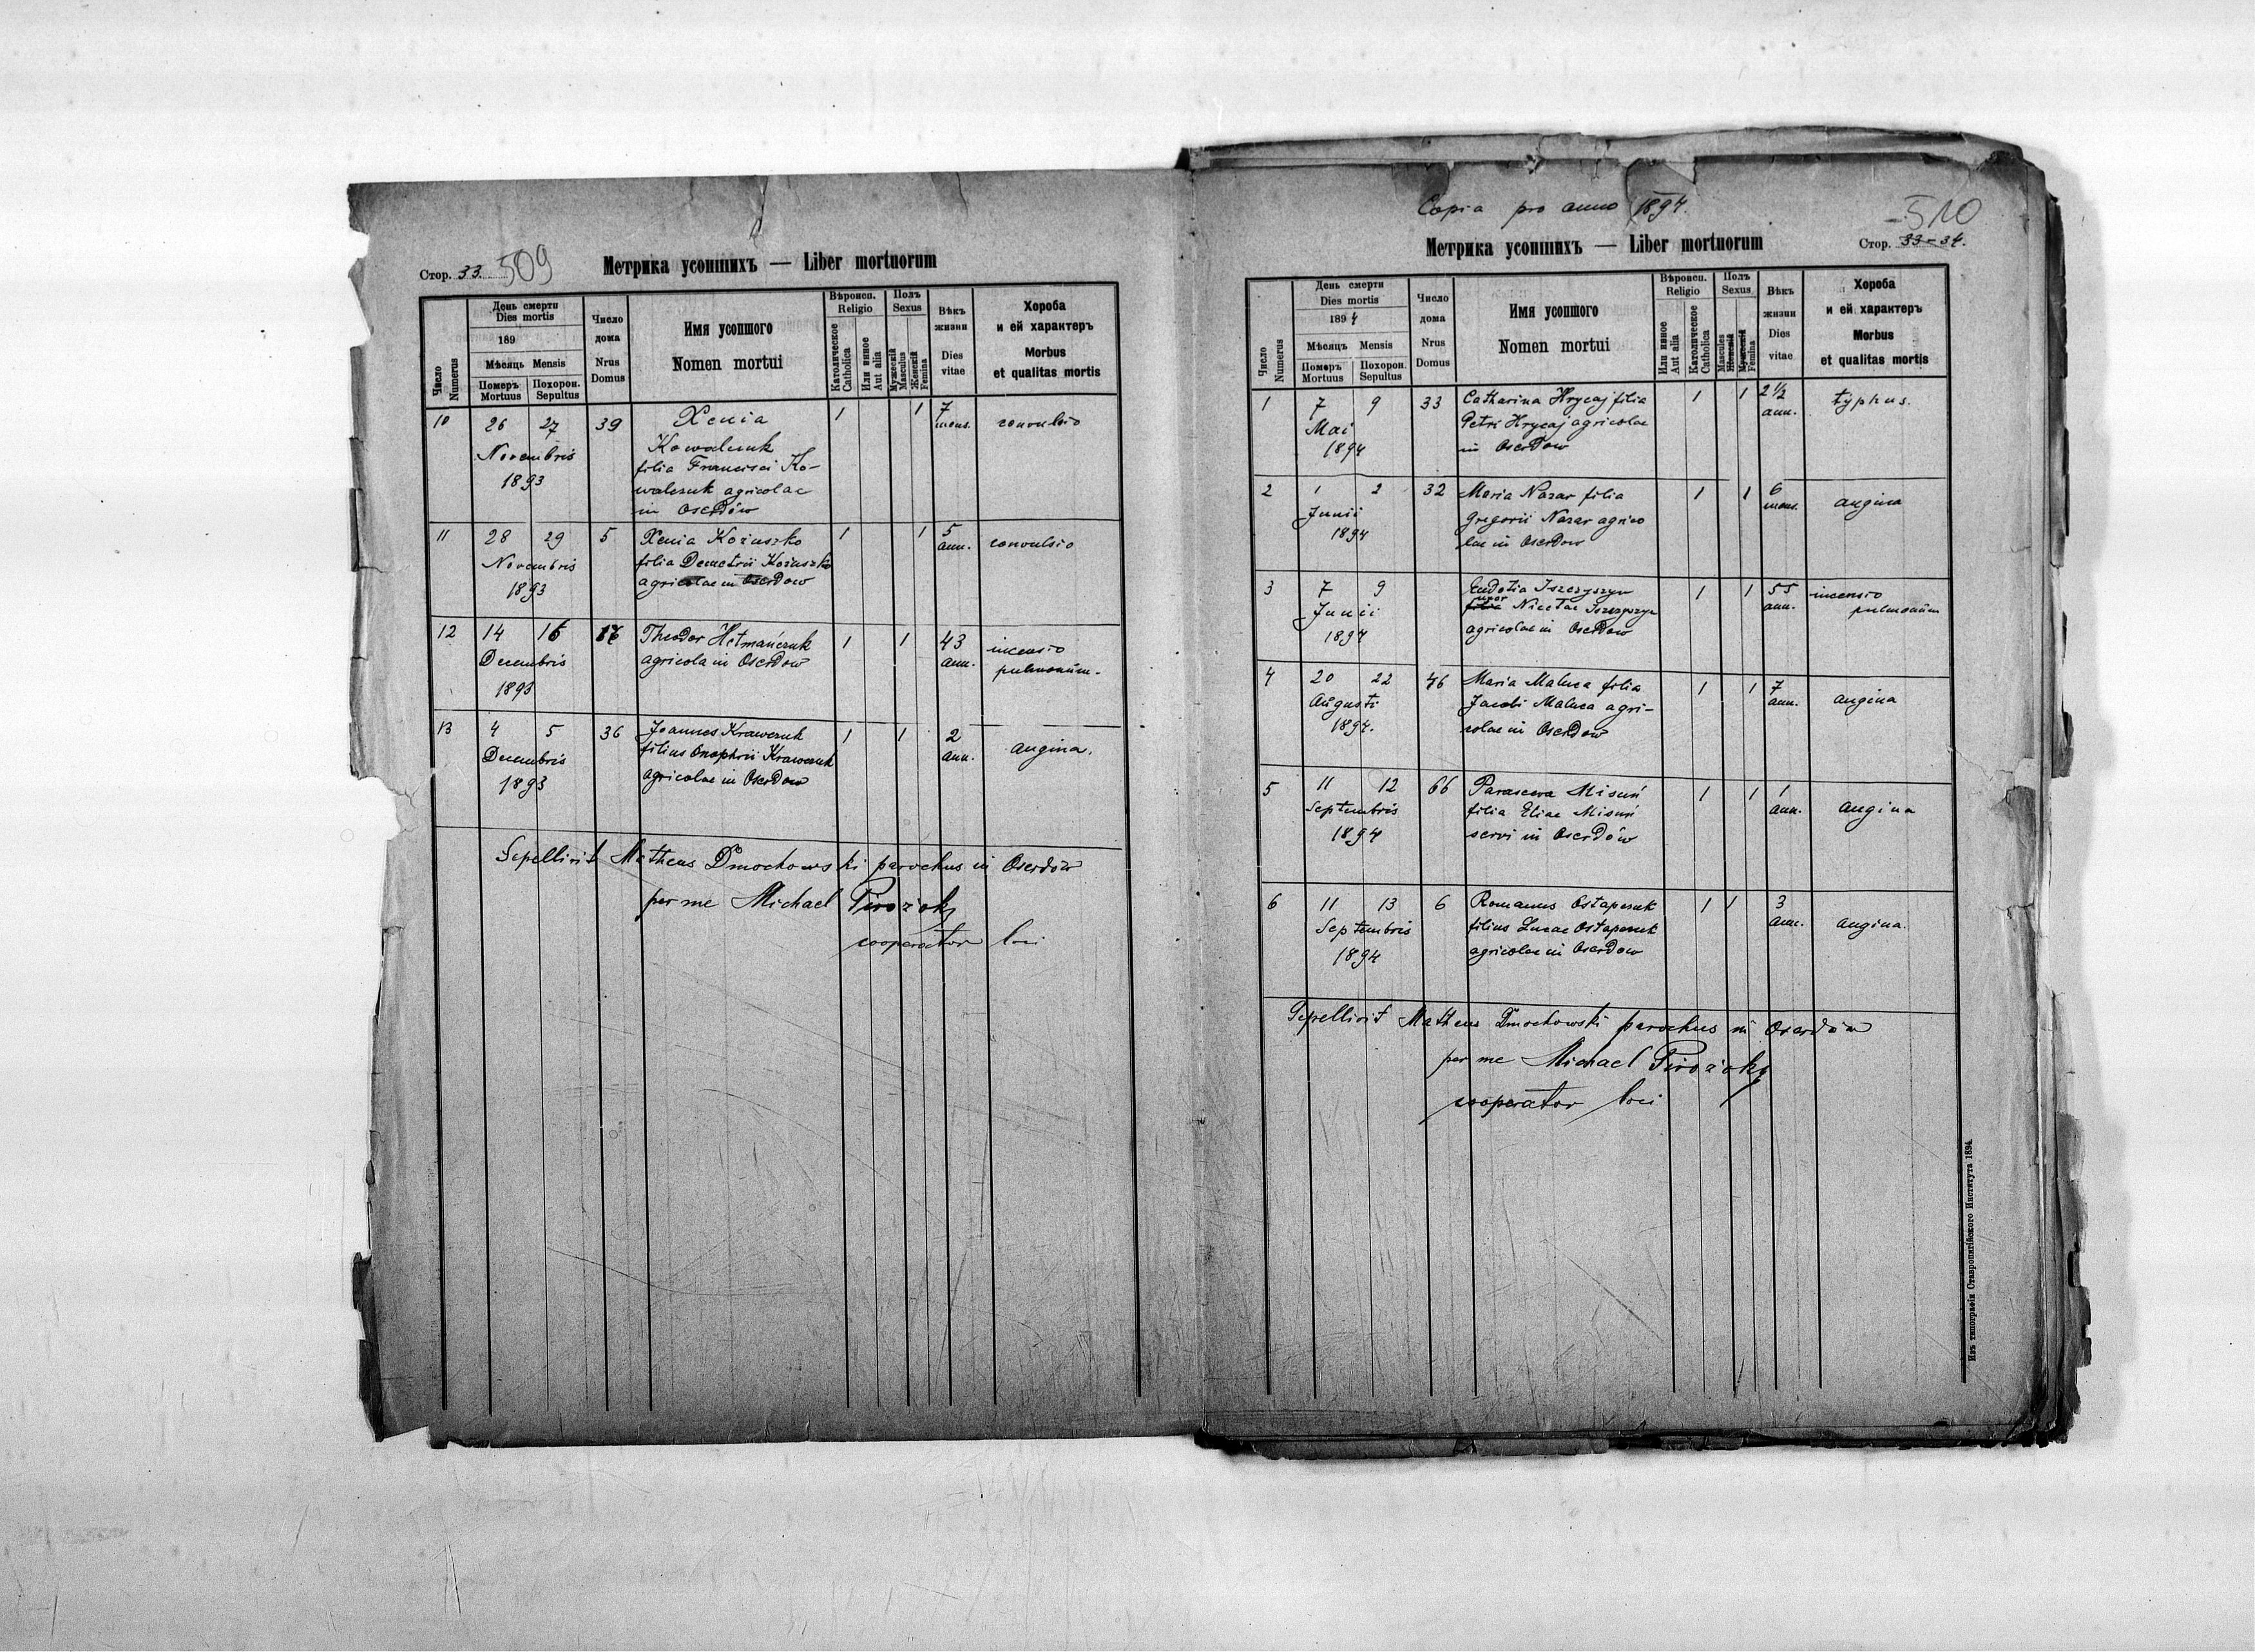 Стор. 33. 509
Метрика усопшихъ — Liber mortuorum
Число Numerus
День смерти
Dies mortis
189
Мѣсяць Mensis
Померъ Mortuus
Похорон. Sepultus
Число дома
Nrus Domus
Имя усопшого
Nomen mortui
Вѣроисп.
Religio
Католическое Catholica
Или инное Aut alia
Полъ
Sexus
Мужескій Masculus
Женскій Femina
Вѣкъ жизни
Dies vitae
Хороба
и ей характеръ
Morbus
et qualitas mortis
10 26 27 39 Xenia 1 1 7 mens. convulsio
Novembris Kowalczuk
filia Francisci Ko-
1893 walczuk agricolae
in Oserdów
11 28 29 5 Xenia Kożuszko 1 1 5 ann. convulsio
Novembris filia Demetrii Kożuszko
1893 agricolae in Oserdow
12 14 16 Theodor Hetmańczuk 1 1 43 incensio
Decembris agricola in Oserdow ann. pulmonum.
1893
13 4 5 36 Joannes Krawczuk 1 1 2 angina.
Decembris filius Onophrii Krawczuk ann.
1893 agricolae in Oserdow
Sepellivit Matheus Dmochowski parochus in Oserdów
per me Michael Pirożok
cooperator loci
Copia pro anno 1894.
510
Метрика усопшихъ — Liber mortuorum
Стор. 33-34.
Число Numerus
День смерти
Dies mortis
1894
Мѣсяцъ Mensis
Померъ Mortuus
Похорон. Sepultus
Число дома
Nrus Domus
Имя усопшого
Nomen mortui
Вѣроисп.
Religio
Или инное Aut alia
Католическое Catholica
Полъ
Sexus
Mascules Женскій
Мужескій Femina
Вѣкъ жизни
Dies vitae
Хороба
и ей характеръ
Morbus
et qualitas mortis
1 7 9 33 Catharina Hrycaj filia 1 1 2 1/2 ann. typhus.
Mai Petri Hrycaj agricolae
1894 in Oserdow
2 1 2 32 Maria Nazar filia 1 1 6 mens. angina
Junii Gregorii Nazar agrico
1894 lae in Oserdow
3 7 9 Eudotia Iszczyszyn 1 1 55 ann. incensio
Junii uxor Nicetae Iszczyszyn pulmonum
1894 agricolae in Oserdow
4 20 22 46 Maria Maluca filia 1 1 7 ann. angina
Augusti Jacobi Maluca agri-
1894. colae in Oserdow
5 11 12 66 Parascewa Misuń 1 1 1 ann. angina
Septembris filia Eliae Misuń
1894 servi in Oserdów
6 11 13 6 Romanus Ostapczuk 1 1 3 ann. angina.
Septembris filius Lucae Ostapczuk
1894 agricolae in Oserdow
Sepellivit Matheus Dmochowski parochus in Oserdów
per me Michael Pirożok
cooperator loci
Изъ типографіи Ставропигійского Института 1894.